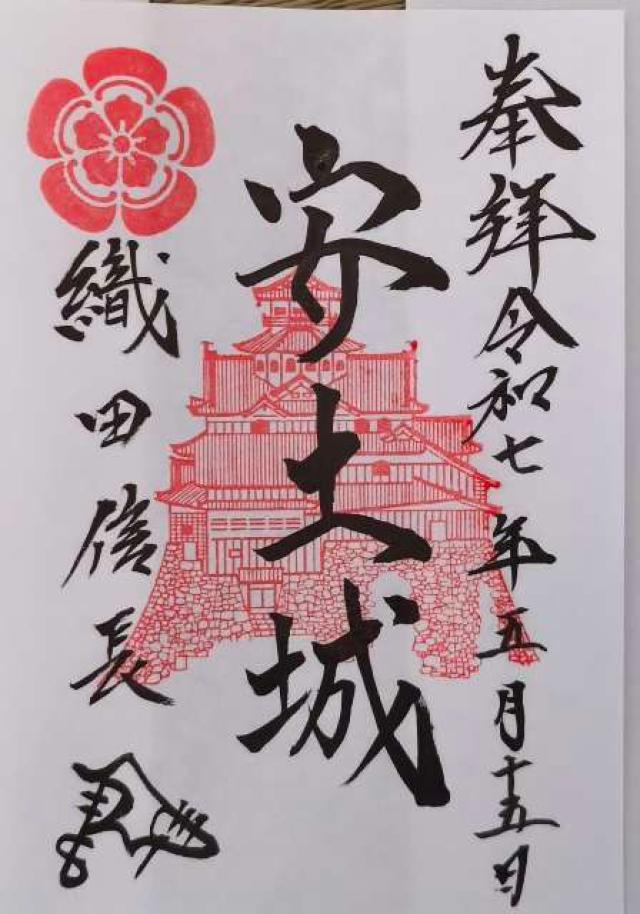 奉拜令和七年五月十五日
安土城
織田信長